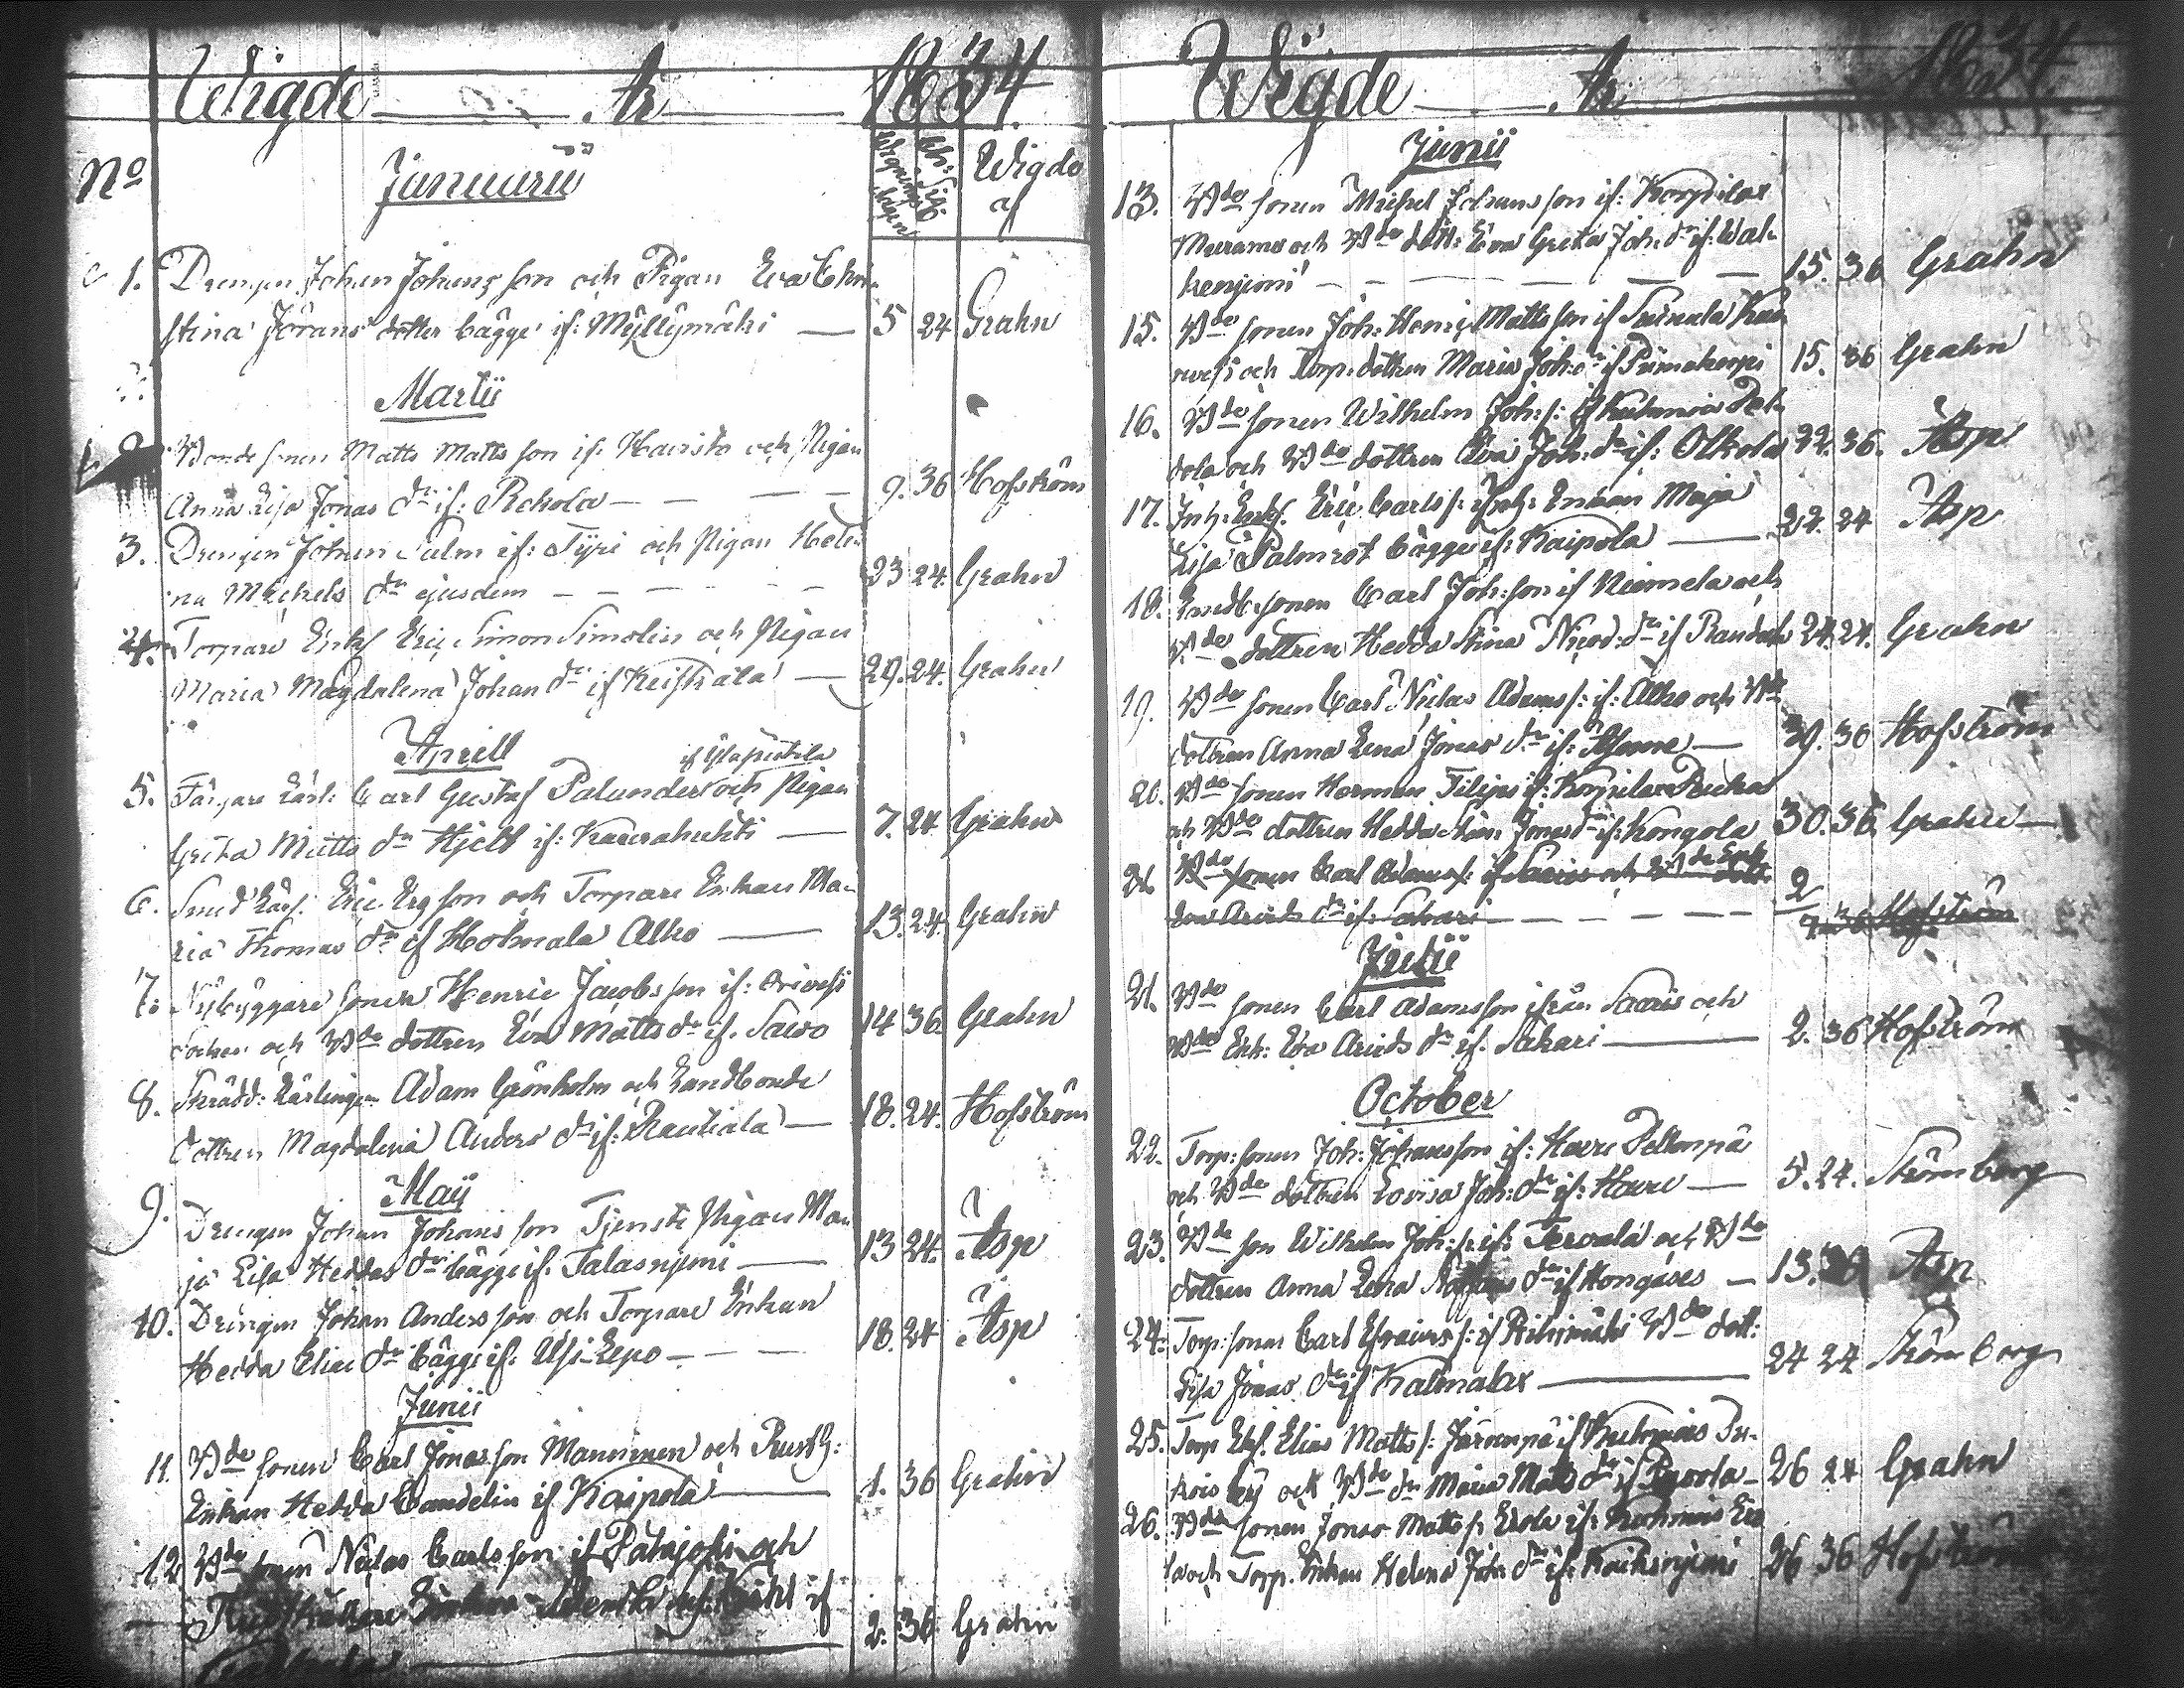 Wigde År 1834.
No
Januarii
Wignings dagen
Wigde af
1. Drengen Johan Johans son och Pigan Eva Chri-
stina Jörans dotter bägge if: Myllymäki 5 24 Grahn
Martii
2. Bonde sonen Matts Matts son if: Havisto och Pigan
Anna Lisa Jonas dr if: Rekola 9. 36 Hofström
3. Drengen Johan Palm if: Tyri och Pigan Hele-
na Michels dr ejusdem 23 24. Grahn
4. Torpare Enkl Eric Simon Simolin och Pigan
Maria Magdalena Johan dr if 29. 24. Grahn
Aprill
5. Färgare Lärl: Carl Gustaf Palander och Pigan
Greta Matts dr Hjelt if: 7. 24. Grahn
6. Smed Lärl. Eric Ers son och Torpare Enkan Ma-
ria Thomas dr if Hohmala Alho 13. 24. Grahn
7. Nybyggare sonen Henric Jacobs son if: Orivesi
Socken och Bde dottren Eva Matts dr if. Sawo 14 36. Grahn
8. Skrädd: Lärlingen Adam Grönholm och Landbonde
dottren Magdalena Anders dr if: Rautiala 18. 24. Hofström
Maij
9. Drengen Johan Johans son Tjenste Pigan Ma-
ja Lisa Heddas dr bägge if. Talasnjemi 13 24. Asp
10. Drengen Johan Anders son och Torpare Enkan
Hedda Elias dr bägge if. Usi-Eepo 18. 24 Asp
Junii
11. Bde sonen Carl Jonas son Manninen och Rusth:
Enkan Hedda Candelin if Kaipola 1. 36 Grahn
12 Bde sonen Niclas Carls son if Patajoki och
Rusthållare Enkan if 2. 36. Grahn
Wigde År 1834.
Junii
13. Bde sonen Michel Johans son if: Korpilax
och Bde dott: Eva Greta Joh: dr if: Wal-
kenjemi 15. 36 Grahn
15. Bde sonen Joh: Henric Matts son if
och Torp: dottren Maria Joh: dr if Piimakorpi 15. 36 Grahn
16. Bde sonen Wilhelm Joh: s: if Kuhmois Pet-
dola och Bde dottren Eva Joh: dr if: Olkola 22. 36. Asp
17. Inh: Enkl. Eric Carls s: Inh: Enkan Maja
Lisa Palmrot bägge if: Kaipola 22. 24 Asp
18. Landb: sonen Carl Joh: son if Niemela och
Bde dottren Hedda Stina Nicod: dr if 24. 24. Grahn
19. Bde sonen Carl Niclas Adams s: if: Alho och Bde
dottren Anna Lena Jonas dr if: 29. 36 Hofström
20. Bde sonen Herman Filips if: Korpilax Rucka
och Bde dottren Hedda Stina Jonas dr if: Kongola 30. 36. Grahn
21. Bde sonen Carl Adams s: if Saaris och Bde Enk
Eva Arvids dr if: Sakari 2/7. 36 Hofström
Julii
21. Bde sonen Carl Adamsson ifrån Saaris och
Bde Enk: Eva Arvids dr if. Sakari 2. 36 Hofström
October
22. Torp: sonen Joh: Johansson if: Have Peltonpä
och Bde dottren Lovisa Joh: dr if: Have 5. 24. Strömborg
23. Bde son Wilhelm Joh: s: if: Tervala och Bde
dottren Anna Lena dr if Hongases 13. 36 Asp
24. Torp: sonen Carl Efraims s: if Riihimäki Bde dott:
Lisa Jonas dr if Kalmalax 24 24 Strömborg
25. Torp Enkl. Elias Matts s: Järvenpä if Kuhmois
by och Bde dr Maria Matts dr if Pavola 26 24 Grahn
26. Bde sonen Jonas Matts s: Erola if: Kuhmois Ero
la och Torp. Enkan Helena Joh: dr if: 26 36 Hofström